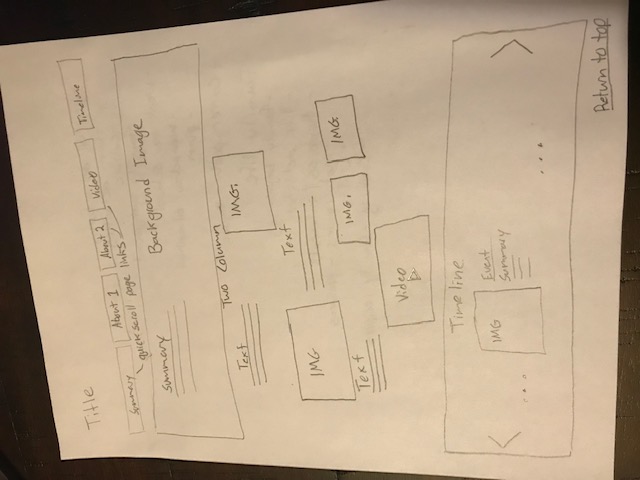 Title
Summary
About 1
About 2
Video
Timeline
quick scroll page links
Summary
Background Image
Two Column
Text
IMG.
IMG
Text
Text
IMG.
IMG.
Video
Timeline
IMG
Event
Summary
...
...
Return to top